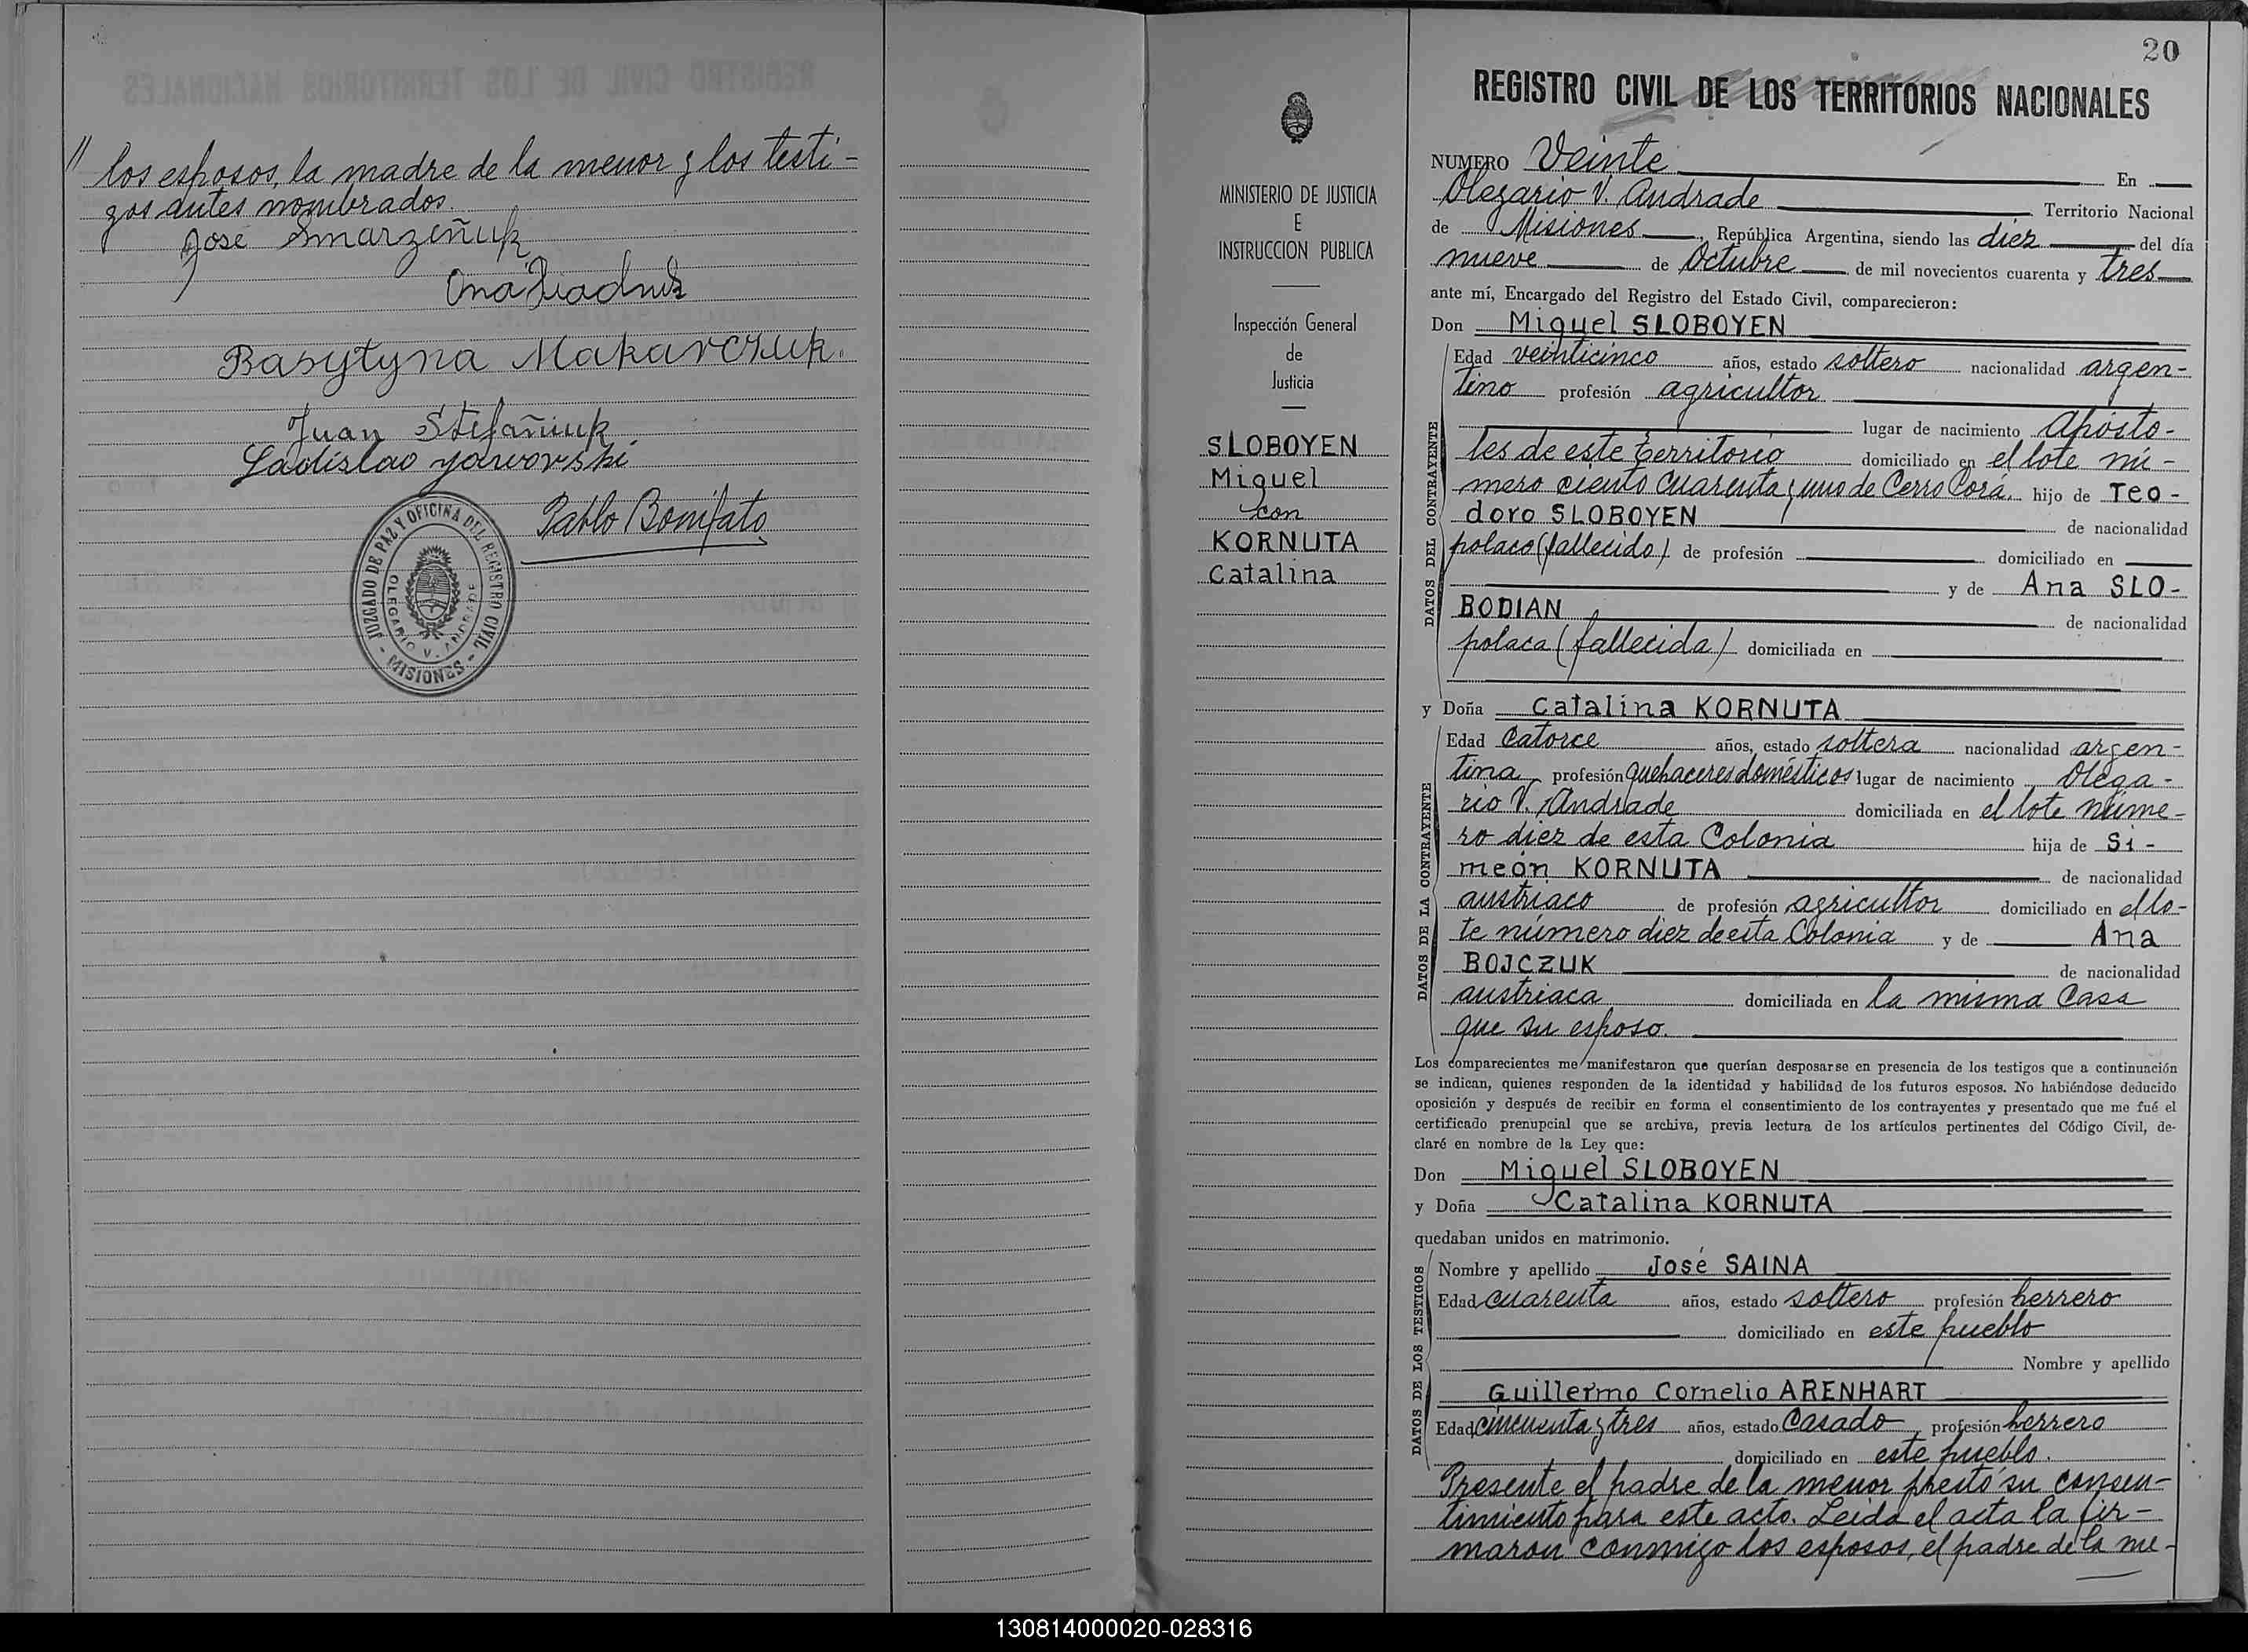 // los esposos, la madre de la menor y los testi-
gos antes nombrados.
José Smarzeñuk
Ona
Basytyna Makarczuk.
Juan Stefañiuk
Ladislao Jaworski
Pablo Bonifato
JUZGADO DE PAZ Y OFICINA DEL REGISTRO CIVIL
OLEGARIO V. ANDRADE
- MISIONES -
MINISTERIO DE JUSTICIA
E
INSTRUCCION PUBLICA
Inspección General
de
Justicia
SLOBOYEN
Miguel
con
KORNUTA
Catalina
20
REGISTRO CIVIL DE LOS TERRITORIOS NACIONALES
NUMERO Veinte En
Olegario V. Andrade Territorio Nacional
de Misiones, República Argentina, siendo las diez del día
nueve de Octubre de mil novecientos cuarenta y tres
ante mí, Encargado del Registro del Estado Civil, comparecieron:
Don Miguel SLOBOYEN
DATOS DEL CONTRAYENTE
Edad veinticinco años, estado soltero nacionalidad argen-
tino profesión agricultor
lugar de nacimiento Aposto-
les de este territorio domiciliado en el lote nú-
mero ciento cuarenta y uno de Cerro Corá. hijo de Teo-
doro SLOBOYEN de nacionalidad
polaco (fallecido) de profesión domiciliado en
y de Ana SLO-
BODIAN de nacionalidad
polaca (fallecida) domiciliada en
y Doña Catalina KORNUTA
DATOS DE LA CONTRAYENTE
Edad Catorce años, estado soltera nacionalidad argen-
tina profesión quehaceres domésticos lugar de nacimiento Olega-
rio V. Andrade domiciliada en el lote núme-
ro diez de esta Colonia hija de Si-
meón KORNUTA de nacionalidad
austriaco de profesión agricultor domiciliado en el lo-
te número diez de esta Colonia y de Ana
BOJCZUK de nacionalidad
austriaca domiciliada en la misma Casa
que su esposo.
Los comparecientes me manifestaron que querían desposarse en presencia de los testigos que a continuación
se indican, quienes responden de la identidad y habilidad de los futuros esposos. No habiéndose deducido
oposición y después de recibir en forma el consentimiento de los contrayentes y presentado que me fué el
certificado prenupcial que se archiva, previa lectura de los artículos pertinentes del Código Civil, de-
claré en nombre de la Ley que:
Don Miguel SLOBOYEN
y Doña Catalina KORNUTA
quedaban unidos en matrimonio.
DATOS DE LOS TESTIGOS
Nombre y apellido José SAINA
Edad cuarenta años, estado soltero profesión herrero
domiciliado en este pueblo
Nombre y apellido
Guillermo Cornelio ARENHART
Edad cincuenta y tres años, estado Casado profesión herrero
domiciliado en este pueblo.
Presente el padre de la menor prestó su consen-
timiento para este acto. Leida el acta la fir-
maron conmigo los esposos, el padre de la me-
130814000020-028316